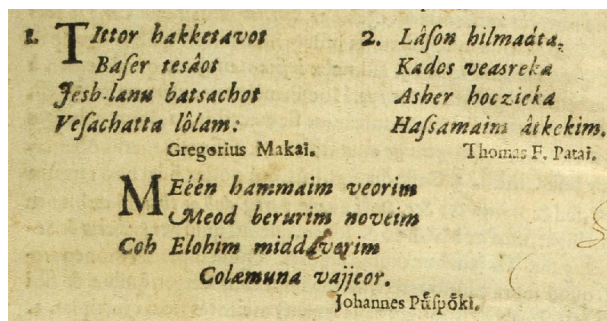 1. TIttor hakketavot
Baſer tesâot
Jesh-lanu batsachot
Veſachatta lôlam:
Gregorius Makai.
2. Lâſon hilmaáta,
Kados veasreka
Asher hoczieka
Haſsamaim âtkekim.
Thomas F. Patai.
MEéén hammaim veorim
Meod berurim noveim
Coh Elohim middaverim
Colæmuna vajjeor.
Johannes Puͤſpoͤki.